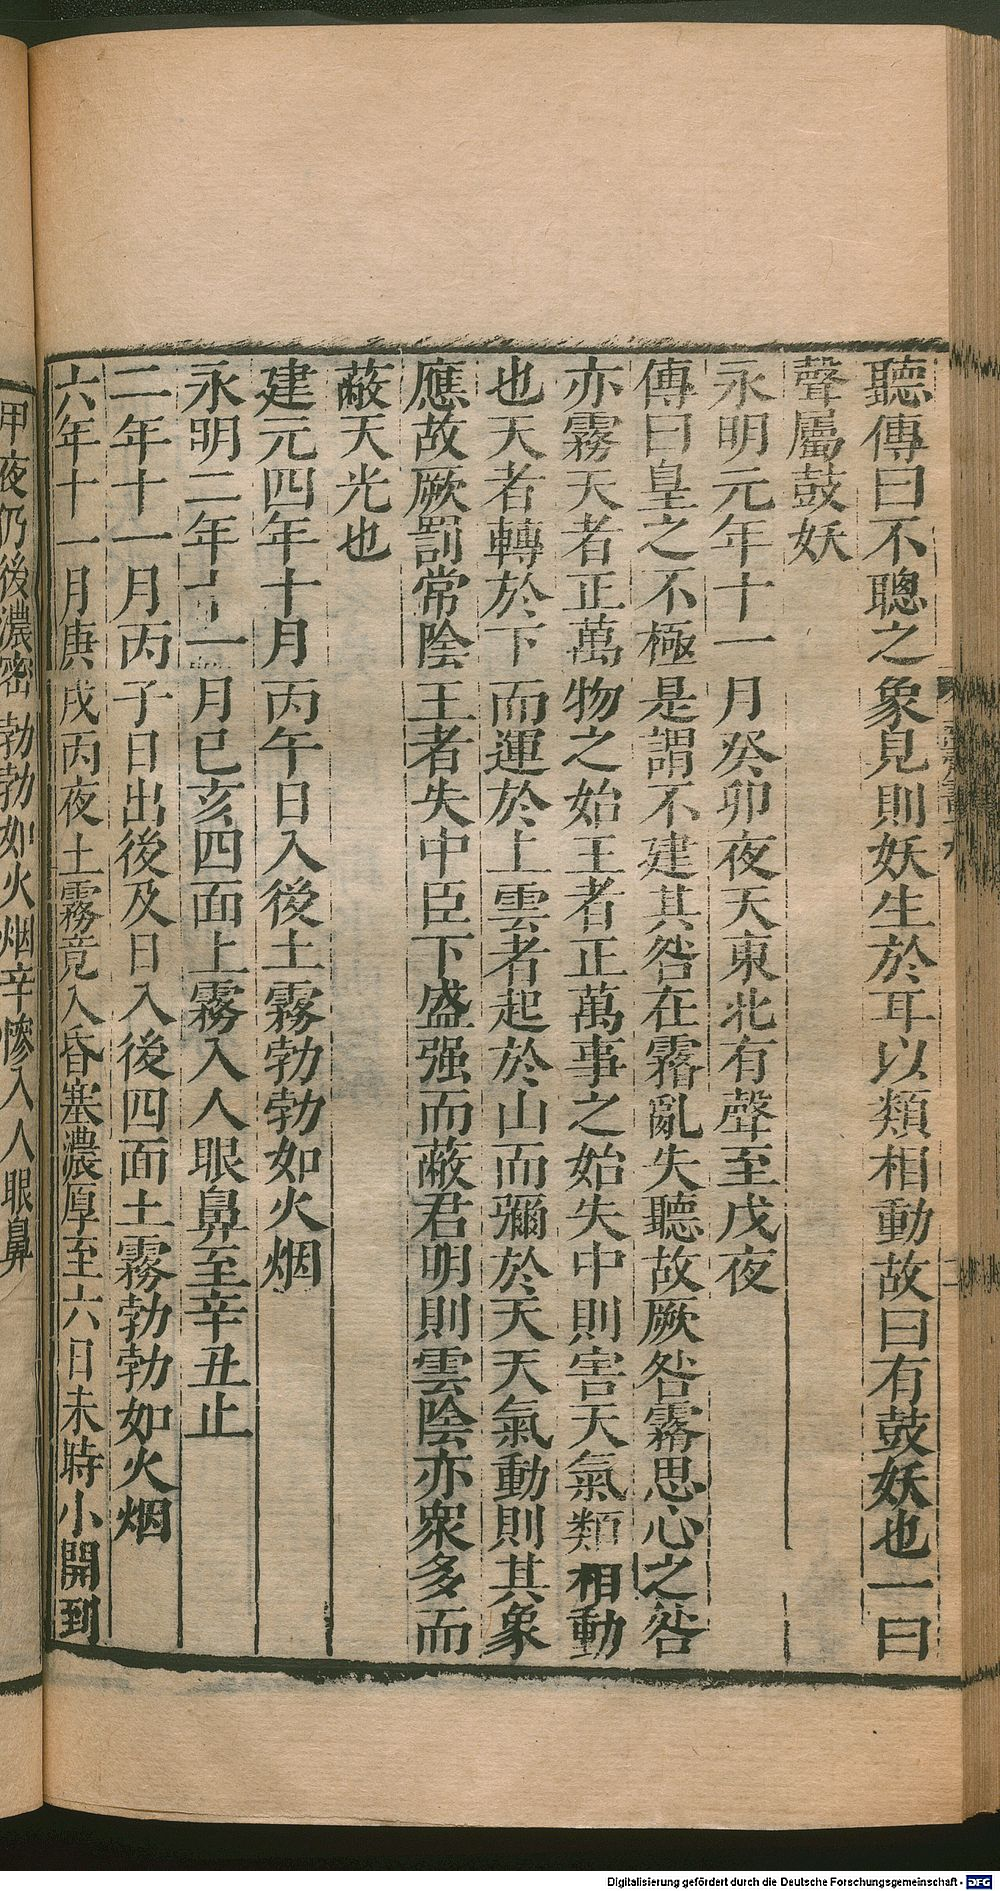 聽傳曰不聰之象見則妖生於耳以類相動故曰有鼓妖也一曰
聲屬鼓妖
永明元年十一月癸卯夜天東北有聲至戊夜
傳曰皇之不極是謂不建其咎在霿亂失聽故厥咎霿思心之咎
亦霧天者正萬物之始王者正萬事之始失中則害天氣類相動
也天者轉於下而運於上雲者起於山而彌於天天氣動則其象
應故厥罰常陰王者失中臣下盛强而蔽君明則雲陰亦衆多而
蔽天光也
建元四年十月丙午日入後土霧勃勃如火烟
永明二年十一月巳亥四面上霧入人眼鼻至辛丑止
二年十一月丙子日出後及日入後四面土霧勃勃如火烟
六年十一月庚戌丙夜土霧竟入昏塞濃厚至六日未時小開到
甲夜仍後濃密勃勃如火烟辛慘入人眼鼻
Digitalisierung gefördert durch die Deutsche Forschungsgemeinschaft - DFG